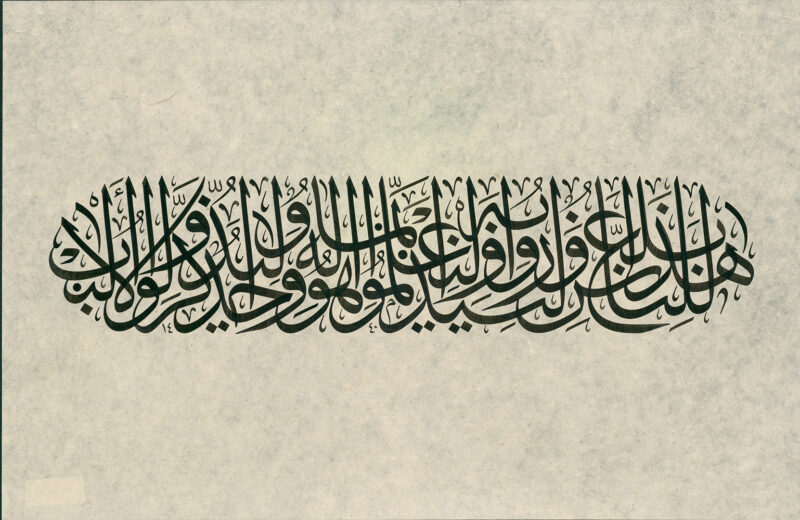 هذا بلاغ للناس ولينذروا به وليعلموا أنما هو إله واحد وليذكر أولو الألباب